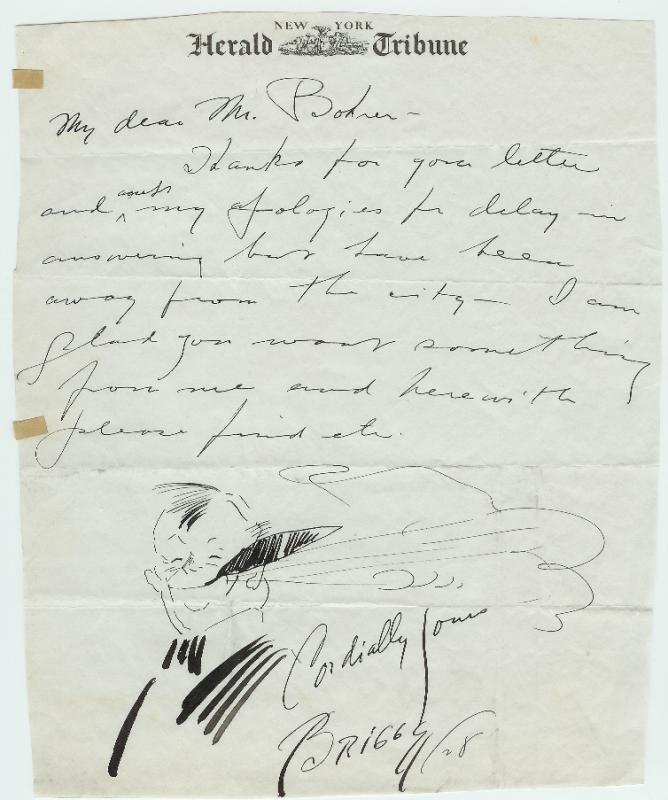 NEW YORK
Herald Tribune
My dear Mr. Bohrer -
Thanks for your letter
and my apologies for delay in
answering but have been
away from the city - I am
glad you want something
from me and herewith
please find etc.
Cordially Yours
BRIGGS /28